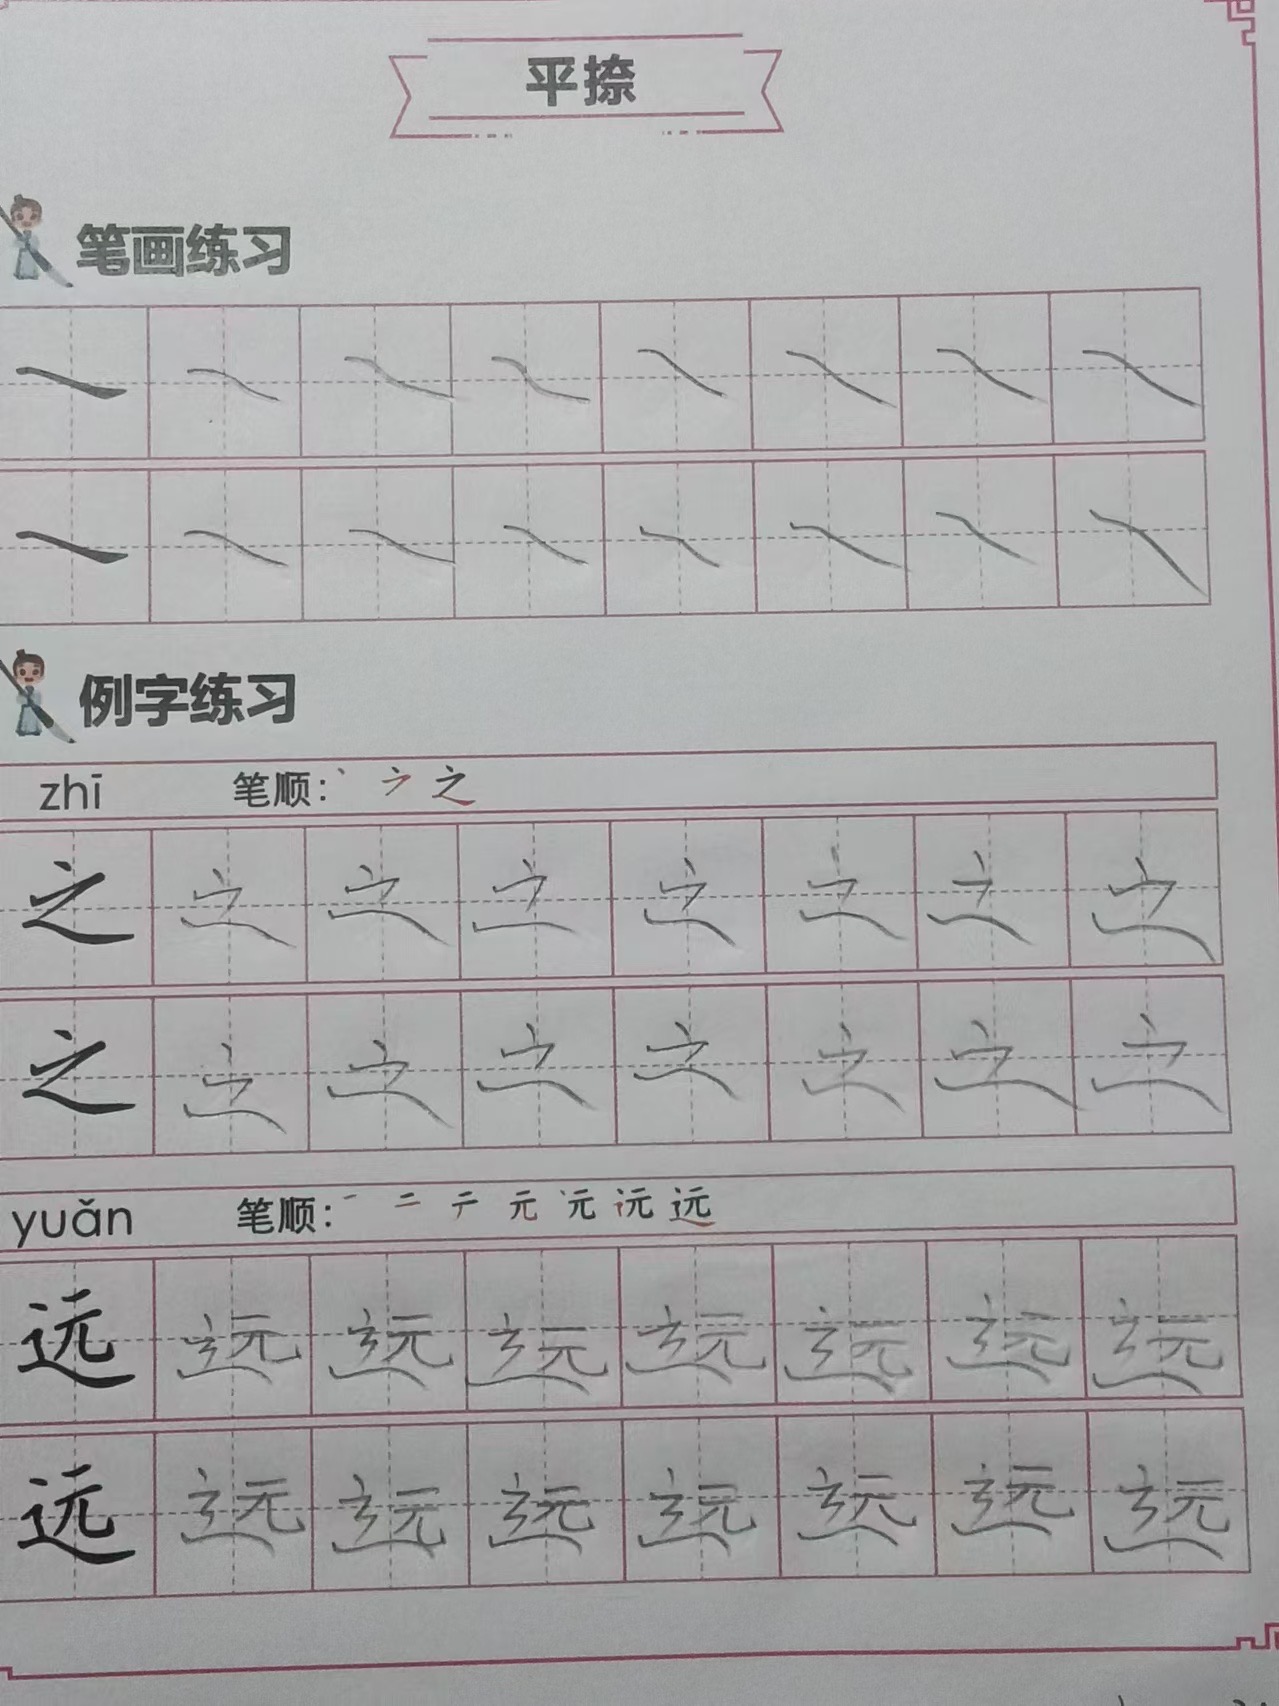 平捺
笔画练习
例字练习
zhī 笔顺：丶 ㇇ 之
之 之 之 之 之 之 之 之
之 之 之 之 之 之 之 之
yuǎn 笔顺：一 二 テ 元 元 远 远
远 远 远 远 远 远 远 远
远 远 远 远 远 远 远 远